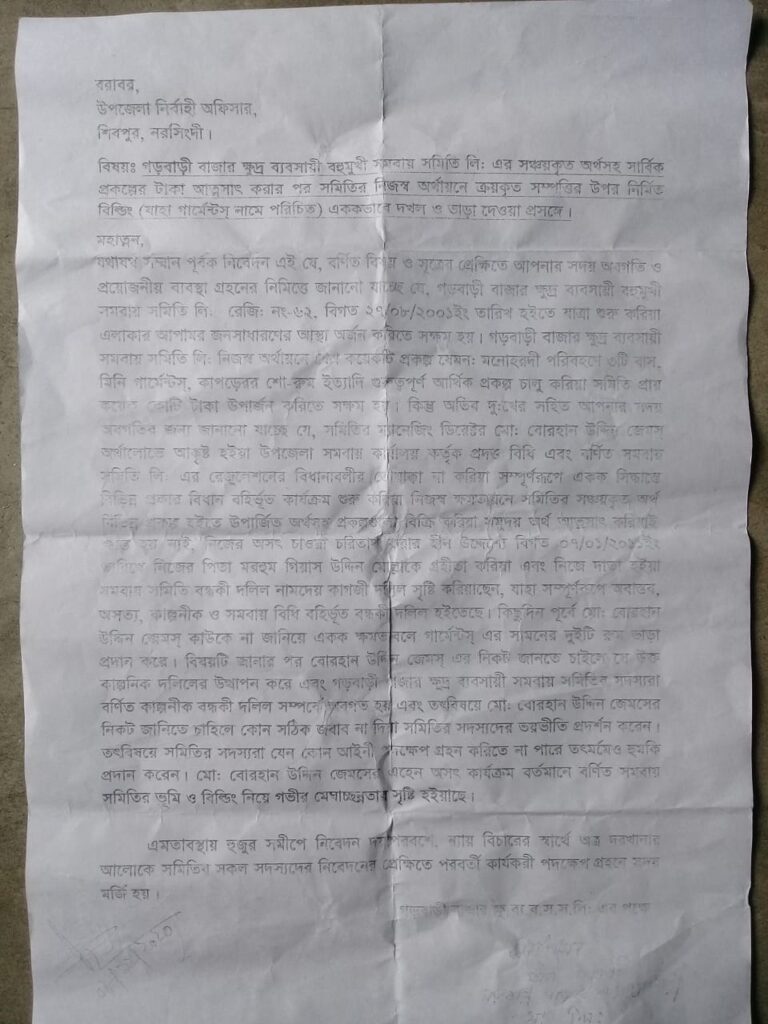 বরাবর,
উপজেলা নির্বাহী অফিসার,
শিবপুর, নরসিংদী।
বিষয়ঃ গড়বাড়ী বাজার ক্ষুদ্র ব্যবসায়ী বহুমুখী সমবায় সমিতি লি: এর সঞ্চয়কৃত অর্থসহ সার্বিক
প্রকল্পের টাকা আত্নসাৎ করার পর সমিতির নিজস্ব অর্থায়নে ক্রয়কৃত সম্পত্তির উপর নির্মিত
বিল্ডিং (যাহা গার্মেন্টস নামে পরিচিত) এককভাবে দখল ও ভাড়া দেওয়া প্রসঙ্গে।
মহাত্নন,
যথাযথ সম্মান পূর্বক নিবেদন এই যে, বর্ণিত বিষয় ও সূত্রের প্রেক্ষিতে আপনার সদয় অবগতি ও
প্রয়োজনীয় ব্যবস্থা গ্রহনের নিমিত্তে জানানো যাচ্ছে যে, গড়বাড়ী বাজার ক্ষুদ্র ব্যবসায়ী বহুমুখী
সমবায় সমিতি লি: রেজি: নং-৬২, বিগত ২৭/০৮/২০০১ইং তারিখ হইতে যাত্রা শুরু করিয়া
এলাকার আপামর জনসাধারণের আস্থা অর্জন করিতে সক্ষম হয়। গড়বাড়ী বাজার ক্ষুদ্র ব্যবসায়ী
সমবায় সমিতি লি: নিজস্ব অর্থায়নে বেশ কয়েকটি প্রকল্প যেমন: মনোহরদী পরিবহণে ৩টি বাস,
মিনি গার্মেন্টস্, কাপড়ের শো-রুম ইত্যাদি গুরুত্বপূর্ণ আর্থিক প্রকল্প চালু করিয়া সমিতি প্রায়
কয়েক কোটি টাকা উপার্জন করিতে সক্ষম হয়। কিন্তু অতিব দু:খের সহিত আপনার সদয়
অবগতির জন্য জানানো যাচ্ছে যে, সমিতির ম্যানেজিং ডিরেক্টর মো: বোরহান উদ্দিন জেমস
অর্থলোভে আকৃষ্ট হইয়া উপজেলা সমবায় কার্যালয় কর্তৃক প্রদত্ত বিধি এবং বর্ণিত সমবায়
সমিতি লি: এর রেজুলেশনের বিধানাবলীর তোয়াক্কা না করিয়া সম্পূর্ণরূপে একক সিদ্ধান্তে
বিভিন্ন প্রকার বিধান বহির্ভূত কার্যক্রম শুরু করিয়া নিজস্ব ক্ষমতায়নে সমিতির সঞ্চয়কৃত অর্থ
বিভিন্ন প্রকল্প হইতে উপার্জিত অর্থসহ প্রকল্পগুলো বিক্রি করিয়া সমুদয় অর্থ আত্নসাৎ করিয়াই
ক্ষান্ত হয় নাই, নিজের অসৎ চাওয়া চরিতার্থ করার হীন উদ্দেশ্যে বিগত ০৭/০১/২০১১ইং
তারিখে নিজের পিতা মরহুম গিয়াস উদ্দিন মোল্লাকে গ্রহীতা করিয়া এবং নিজে দাতা হইয়া
সমবায় সমিতি বন্ধকী দলিল নামদেয় কাগজী দলিল সৃষ্টি করিয়াছেন, যাহা সম্পূর্ণরূপে অবাস্তব,
অসত্য, কাল্পনীক ও সমবায় বিধি বহির্ভূত বন্ধকী দলিল হইতেছে। কিছুদিন পূর্বে মো: বোরহান
উদ্দিন জেমস্ কাউকে না জানিয়ে একক ক্ষমতাবলে গার্মেন্টস্ এর সামনের দুইটি রুম ভাড়া
প্রদান করে। বিষয়টি জানার পর বোরহান উদ্দিন জেমস্ এর নিকট জানতে চাইলে সে উক্ত
কাল্পনিক দলিলের উত্থাপন করে এবং গড়বাড়ী বাজার ক্ষুদ্র ব্যবসায়ী সমবায় সমিতির সদস্যরা
বর্ণিত কাল্পনীক বন্ধকী দলিল সম্পর্কে অবগত হয় এবং তৎবিষয়ে মো: বোরহান উদ্দিন জেমসের
নিকট জানিতে চাহিলে কোন সঠিক জবাব না দিয়া সমিতির সদস্যদের ভয়ভীতি প্রদর্শন করেন।
তৎবিষয়ে সমিতির সদস্যরা যেন কোন আইনী পদক্ষেপ গ্রহন করিতে না পারে তৎমর্মেও হুমকি
প্রদান করেন। মো: বোরহান উদ্দিন জেমসের এহেন অসৎ কার্যক্রম বর্তমানে বর্ণিত সমবায়
সমিতির ভূমি ও বিল্ডিং নিয়ে গভীর মেঘাচ্ছন্নতার সৃষ্টি হইয়াছে।
এমতাবস্থায় হুজুর সমীপে নিবেদন দয়াপরবশে, ন্যায় বিচারের স্বার্থে অত্র দরখাস্তর
আলোকে সমিতির সকল সদস্যদের নিবেদনের প্রেক্ষিতে পরবর্তী কার্যকরী পদক্ষেপ গ্রহনে সদয়
মর্জি হয়।
গড়বাড়ী বাজার ক্ষু.ব্য.ব.স.স.লি: এর পক্ষে